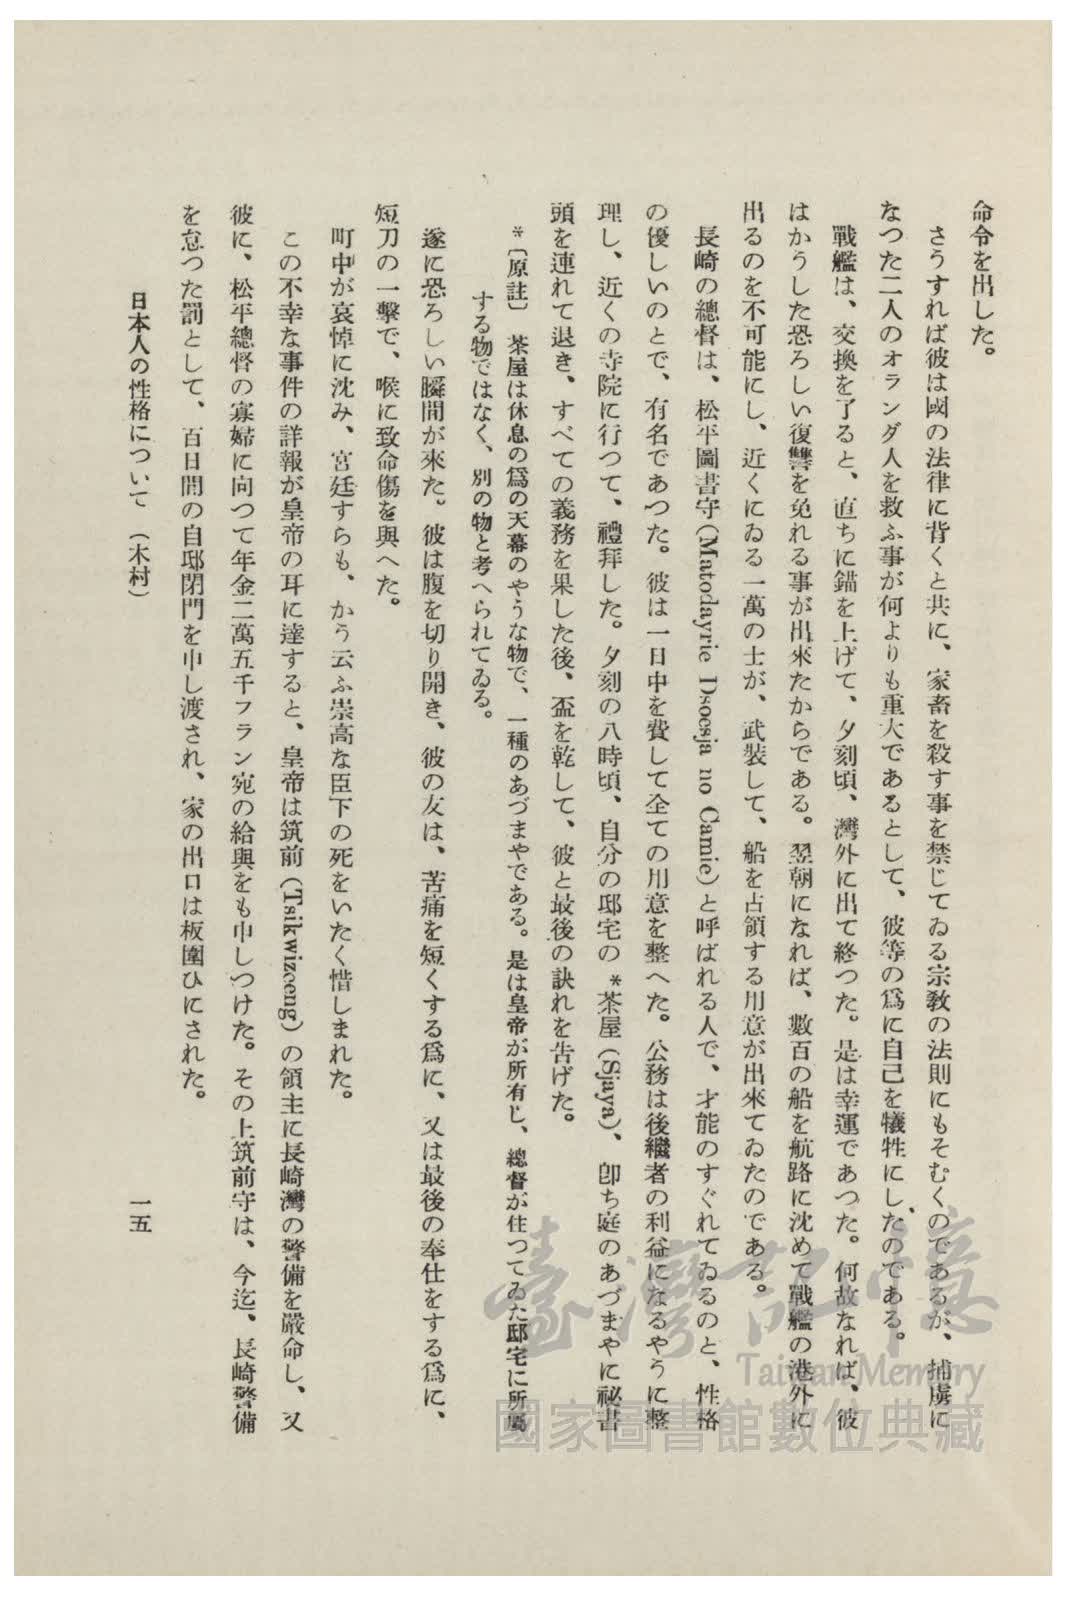 命令を出した。
さうすれば彼は國の法律に背くと共に、家畜を殺す事を禁じてゐる宗教の法則にもそむくのであるが、捕虜に
なつた二人のオランダ人を救ふ事が何よりも重大であるとして、彼等の爲に自己を犠牲にしたのである。
戰艦は、交換を了ると、直ちに錨を上げて、夕刻頃、灣外に出て終つた。是は幸運であつた。何故なれば、彼
はかうした恐ろしい復讐を免れる事が出來たからである。翌朝になれば、數百の船を航路に沈めて戰艦の港外に
出るのを不可能にし、近くにゐる一萬の士が、武裝して、船を占領する用意が出來てゐたのである。
長崎の總督は、松平圖書守(Matodayrie Dsoesja no Camie)と呼ばれる人で、才能のすぐれてゐるのと、性格
の優しいのとで、有名であつた。彼は一日中を費して全ての用意を整へた。公務は後繼者の利益になるやうに整
理し、近くの寺院に行つて、禮拜した。夕刻の八時頃、自分の邸宅の*茶屋(Sjaya)、卽ち庭のあづまやに祕書
頭を連れて退き、すべての義務を果した後、盃を乾して、彼と最後の訣れを告げた。
*〔原註〕 茶屋は休息の爲の天幕のやうな物で、一種のあづまやである。是は皇帝が所有し、總督が住つてゐた邸宅に所屬
する物ではなく、別の物と考へられてゐる。
遂に恐ろしい瞬間が來た。彼は腹を切り開き、彼の友は、苦痛を短くする爲に、又は最後の奉仕をする爲に、
短刀の一擊で、喉に致命傷を與へた。
町中が哀悼に沈み、宮廷すらも、かう云ふ崇高な臣下の死をいたく惜しまれた。
この不幸な事件の詳報が皇帝の耳に達すると、皇帝は筑前(Tsikwizoeng)の領主に長崎灣の警備を嚴命し、又
彼に、松平總督の寡婦に向つて年金二萬五千フラン宛の給與をも申しつけた。その上筑前守は、今迄、長崎警備
を怠つた罰として、百日間の自邸閉門を申し渡され、家の出口は板圍ひにされた。
日本人の性格について (木村)
一五
臺灣記憶
Taiwan Memory
國家圖書館數位典藏